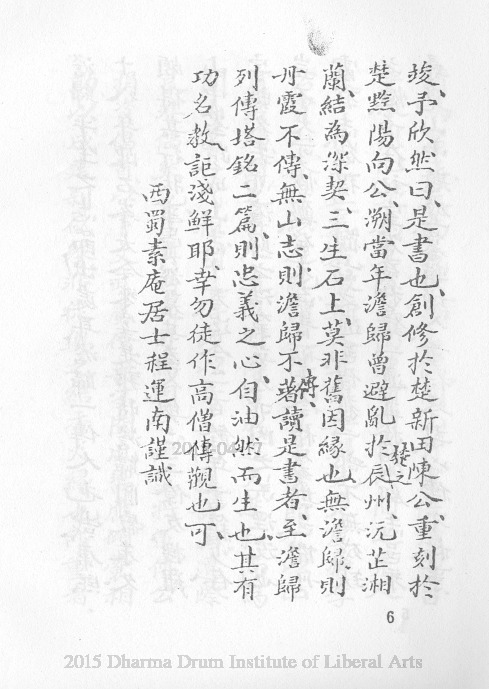 竣、予欣然曰、是書也、創修於楚新田陳公、重刻於
楚黔陽向公、溯當年澹歸曾避亂於楚之辰州、沅芷湘
蘭、結為深契、三生石上、莫非舊因緣也、無澹歸、則
丹霞不傳、無山志、則澹歸不著傳、讀是書者、至澹歸
列傳塔銘二篇、則忠義之心、自油然而生也、其有
功名教、詎淺鮮耶、幸勿徒作高僧傳觀也可、
西蜀素庵居士程運南謹識
6
2015 Dharma Drum Institute of Liberal Arts